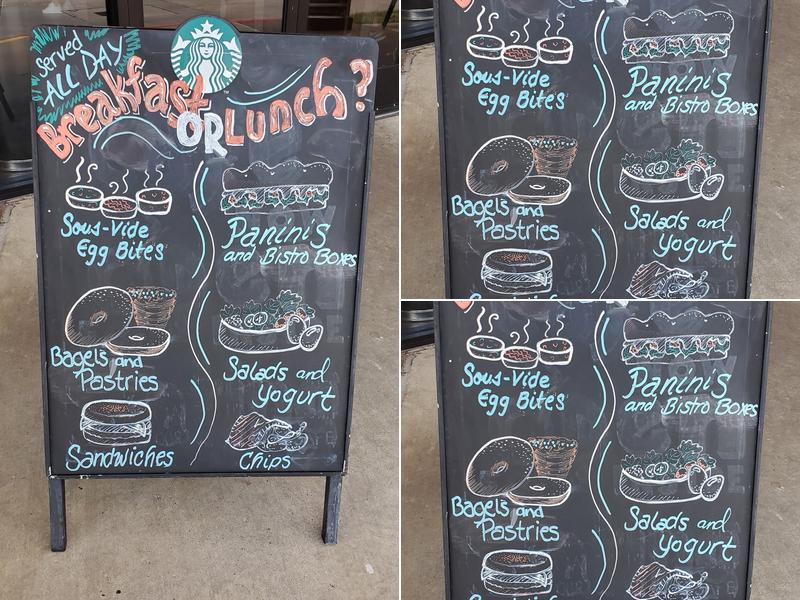 Served
ALL DAY
Breakfast
OR LUNCH?
Sous-Vide
Egg Bites
Panini's
and Bistro Boxes
Bagels and
Pastries
Salads and
Yogurt
Sandwiches
Chips
Sous-Vide
Egg Bites
Panini's
and Bistro Boxes
Bagels and
Pastries
Salads and
Yogurt
Sous-Vide
Egg Bites
Panini's
and Bistro Boxes
Bagels and
Pastries
Salads and
Yogurt